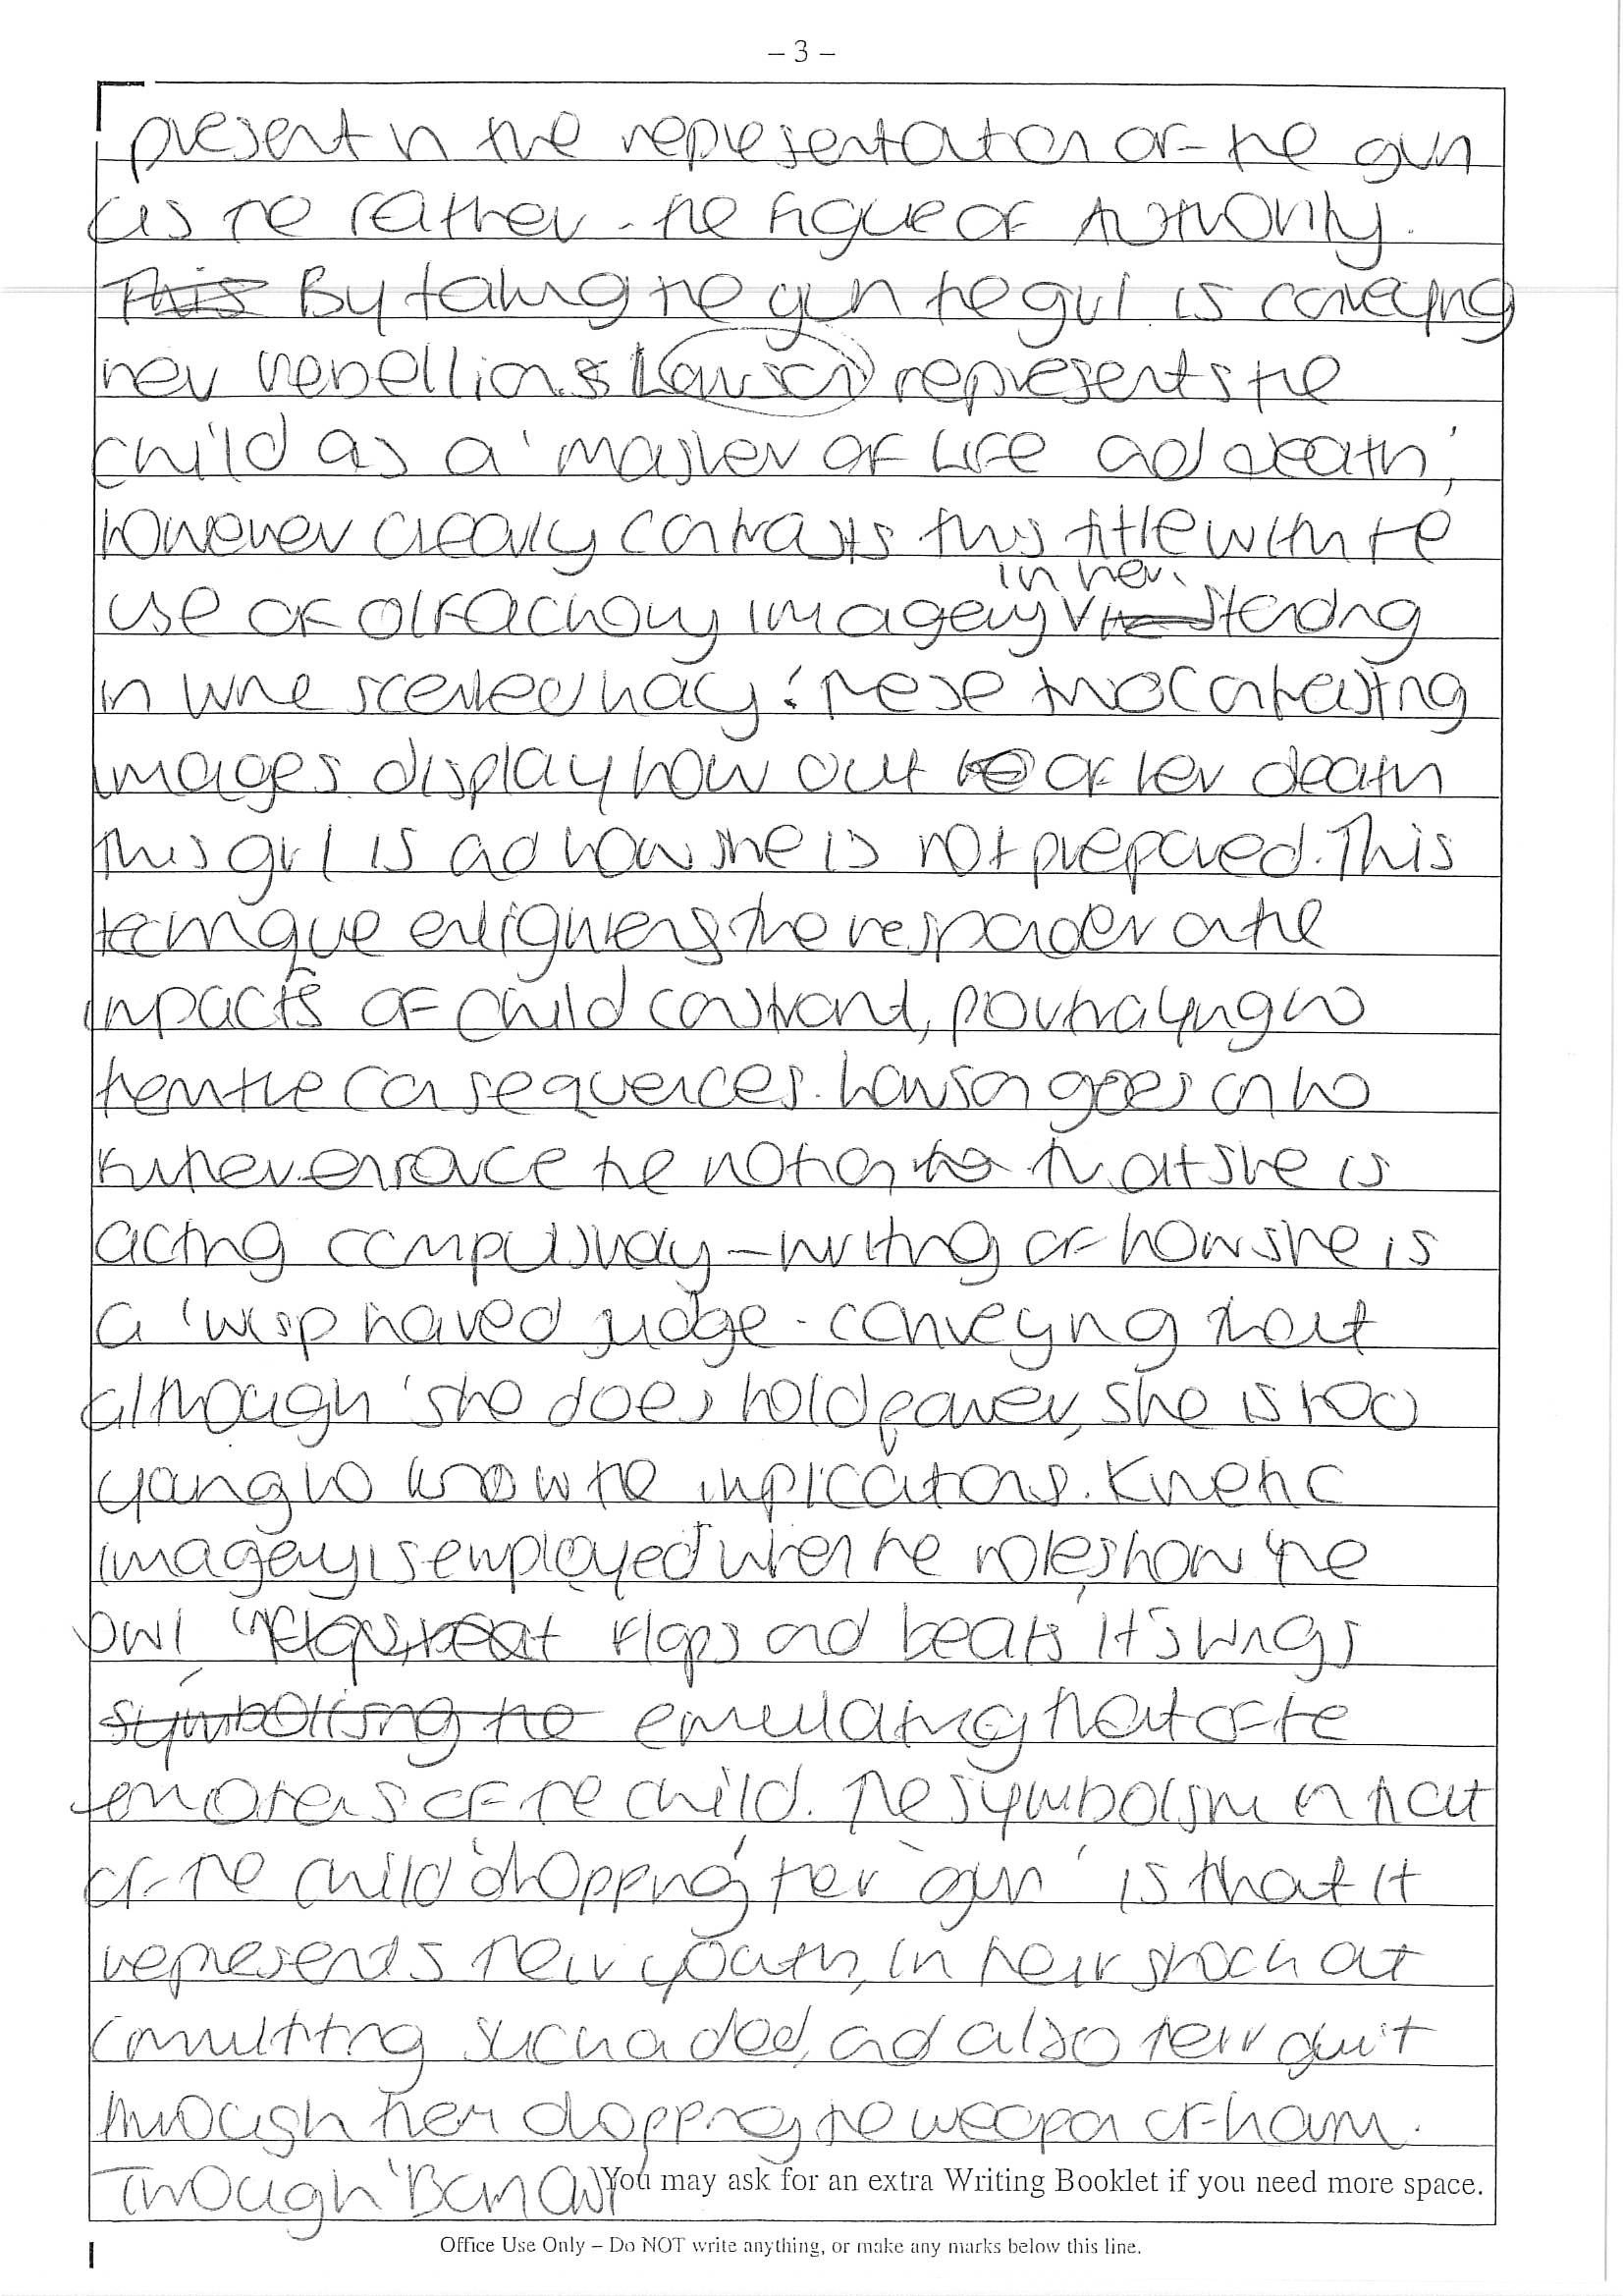 – 3 –
present in the representation of the gun
as the father - the figure of Authority.
This By taking the gun the girl is conveying
her rebellion. & Lawson represents the
child as a 'master of life and death',
however clearly contrasts this title with the
in her
use of olfactory imagery V the standing
in urine scented hay'. These two contrasting
images display how out to of her death
this girl is and how she is not prepared. This
technique enlightens the responder on the
impacts of child constraint, portraying to
them the consequences. Lawson goes on to
further enhance the notion tha that she is
acting compulsivaly – writing of how she is
a 'wisp haired judge - conveying that
although she does hold power, she is too
young to know the implications. Kinetic
imagery is employed when he notes how the
owl 'flaps, beat flaps and beats it's wings
symbolising the emulating that of the
emotions of the child. The symbolism in that
of the child 'dropping' her 'gun' is that it
represents their youth, in their shock at
committing such a deed, and also their guilt
through them dropping the weapon of harm.
Through 'Barn Owl
You may ask for an extra Writing Booklet if you need more space.
Office Use Only – Do NOT write anything, or make any marks below this line.